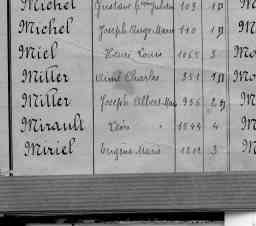 Michel Gustave 103 1 D M
Michel Joseph Hugo Marie 190 1 D M
Miel Henri Louis 1065 3 Mo
Miller Aimé Charles 351 1 D Mo
Miller Joseph Albert Mar 956 2 D M
Mirault Léon 1549 4 M
Miriel Eugène Marie 1202 3 M